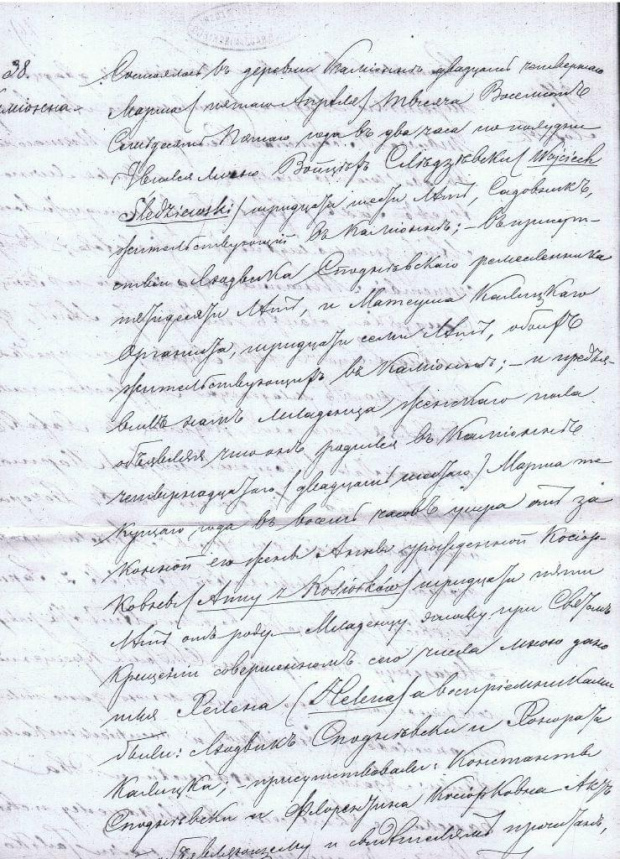 38.
Состоялось въ деревни Каміонна двадцать четвертаго
Марта / пятаго Апрѣля / тысяча восемсотъ
Семдесятъ Пятаго года въ два часа по полудни
Явился лично Войцѣхъ Слѣдзѣвски / Wojciech
Śledziewski / тридцати шести лѣтъ, Садовникъ,
жительствующій въ Каміоннѣ; – въ присут-
ствіи Людвика Сподынѣвского ремесленника
лѣтъ, и Матеуша Калицкаго
Органиста, тридцати семи лѣтъ, обоихъ
жительствующихъ въ Каміоннѣ; – и предъя-
вилъ намъ младенца женскаго пола
объявляя что онъ родился въ Каміоннѣ
четырнадцатаго / двадцать шестаго / Марта те
кущаго года въ восемь часовъ утра отъ за
конной его жены Анны урожденной Косіор-
ковнѣ / Anny z Kosiorków / тридцати пяти
лѣтъ отъ роду – Младенцу этому при Святомъ
Крещеніи совершенномъ сего числа мною дано
имя Хелена / Helena / а воспріемниками
были: Людвикъ Сподынѣвски и Хонората
Калицка; – присутствовали: Константы
Сподынѣвски и Флорентина Косіорковна Актъ
объявляющему и свидѣтелямъ прочитанъ,